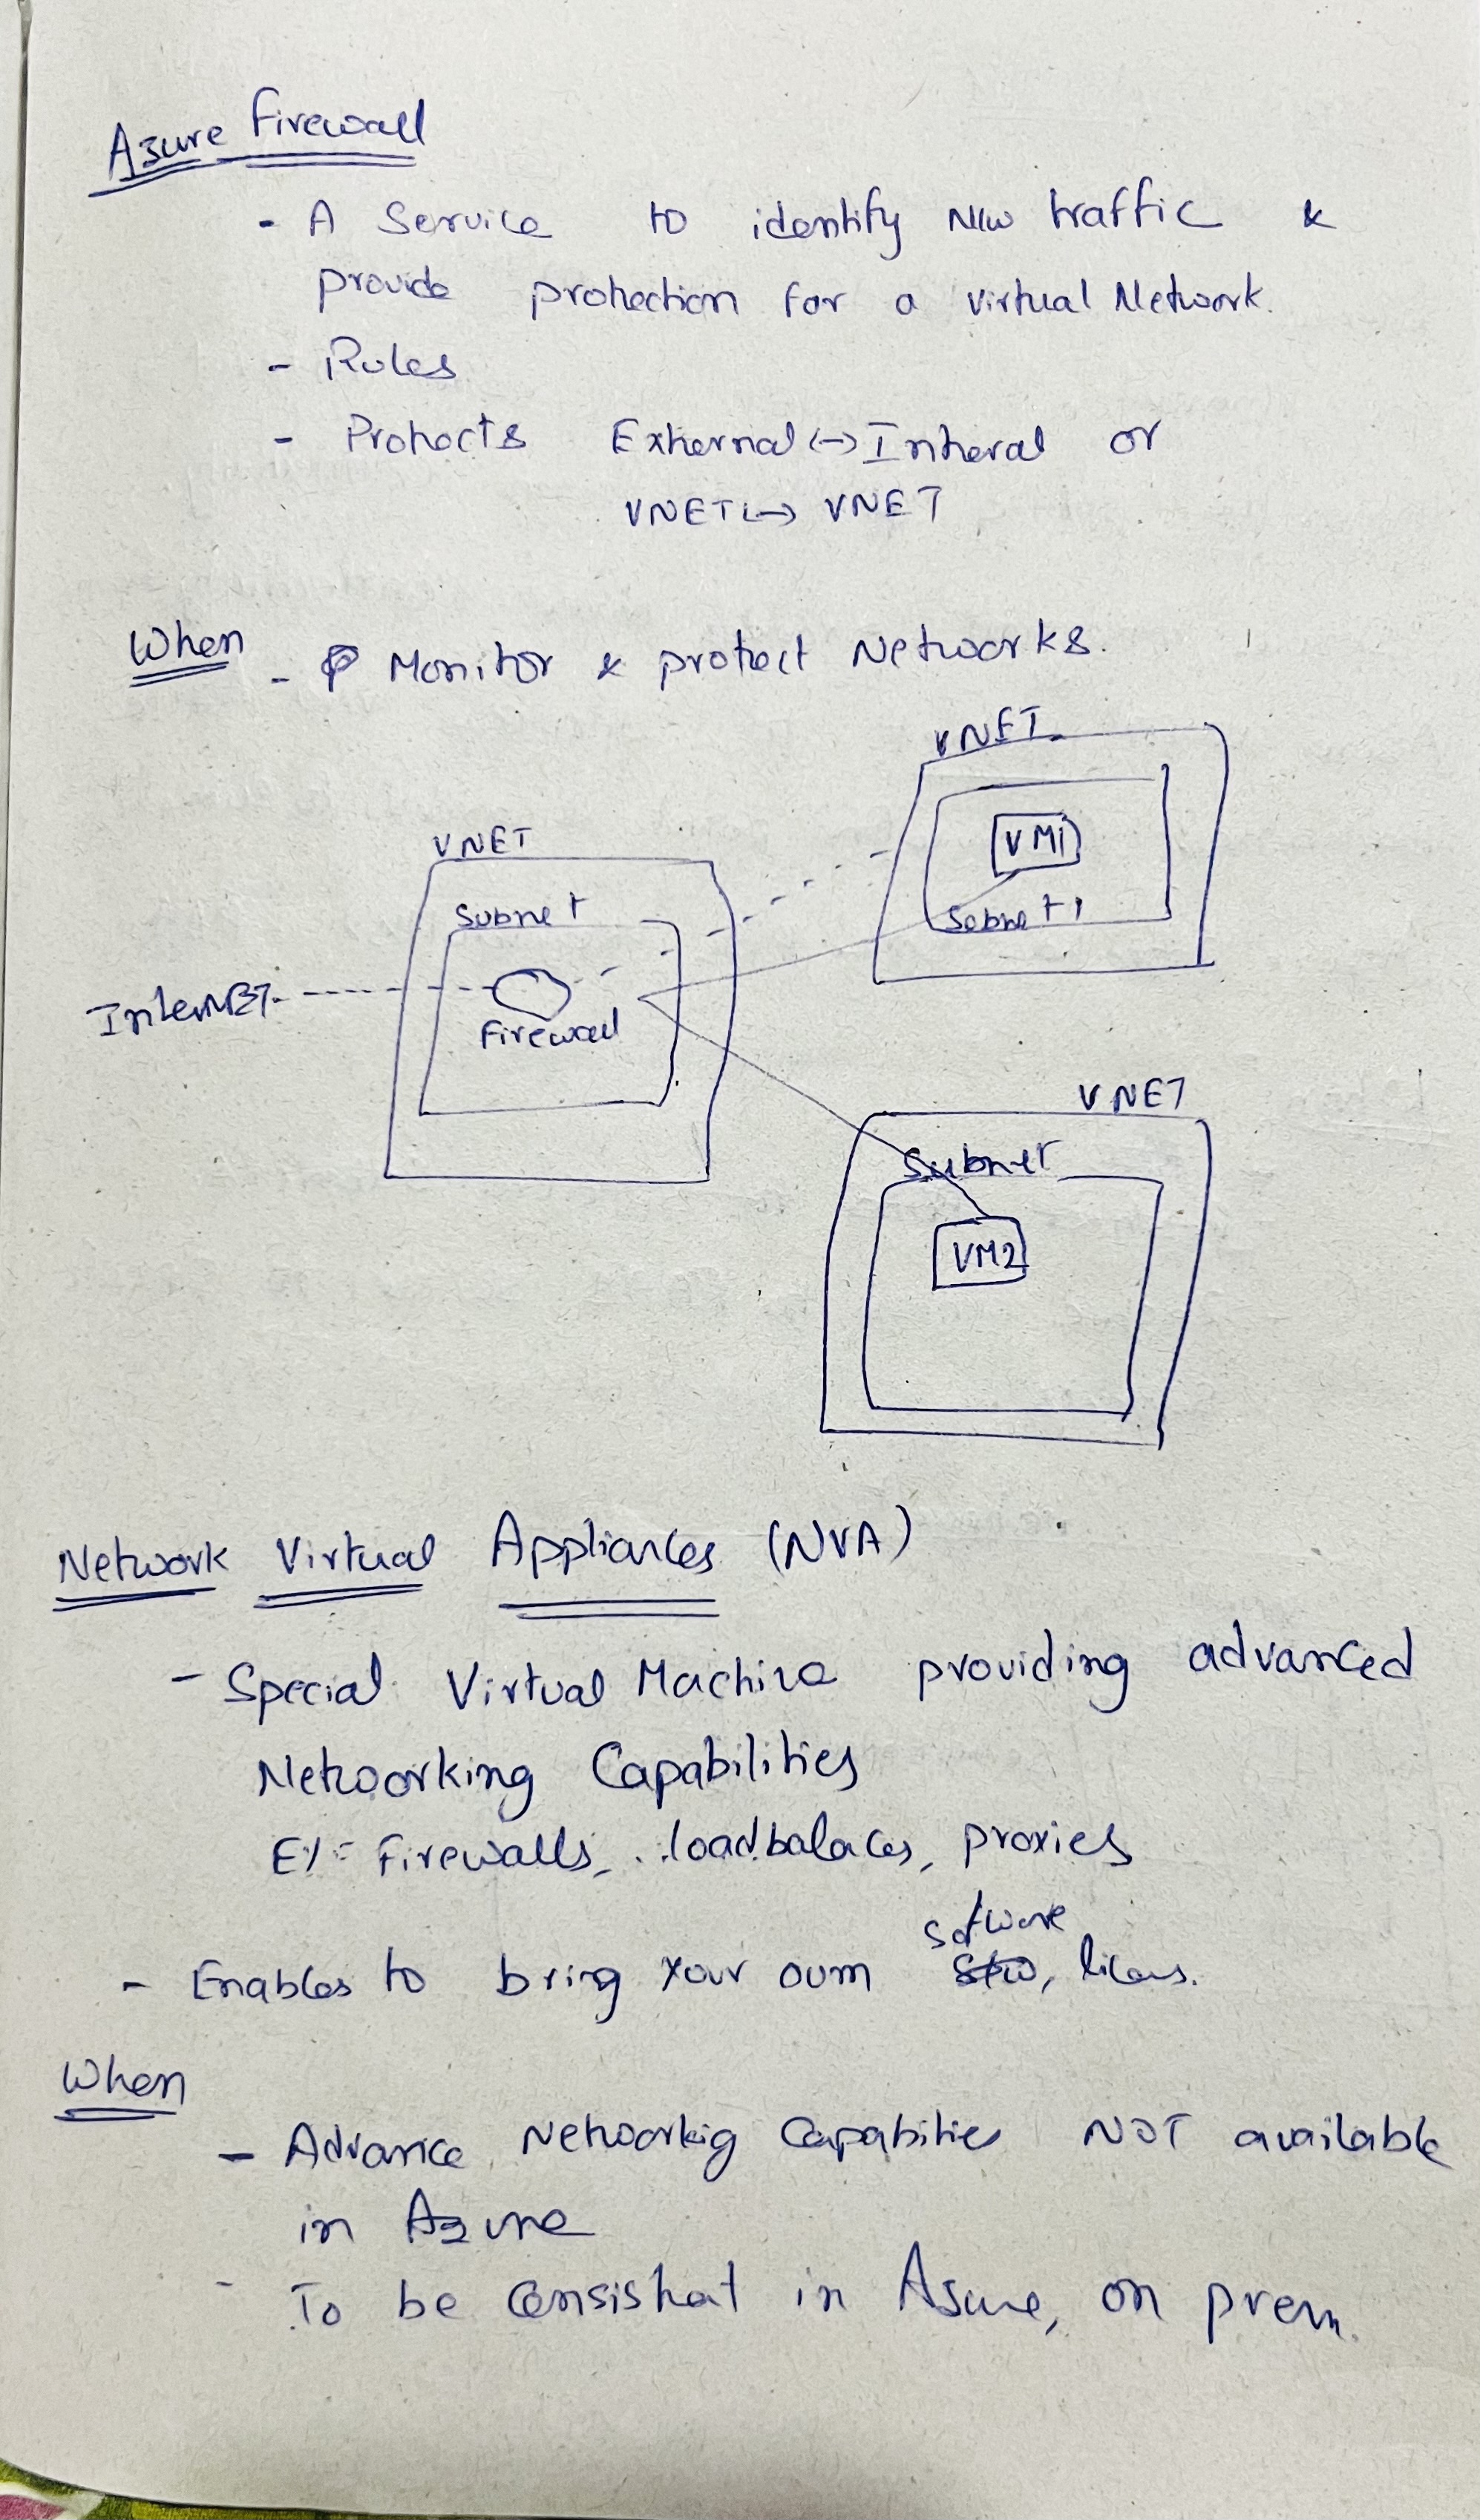 Azure Firewall
- A Service to identify N/w traffic &
provide protection for a Virtual Network.
- Rules
- Protects External <-> Interal or
VNET <-> VNET
When - Monitor & protect Networks.
VNET
VM1
Subnet 1
VNET
Subnet
InterNET
Firewall
VNET
Subnet
VM2
Network Virtual Appliances (NVA)
- Special Virtual Machine providing advanced
Networking Capabilities
Ex:- Firewalls, loadbalaces, proxies
software
- Enables to bring your own S/w, licens.
When
- Advance Networkig Capabilities NOT available
in Azure
- To be consistent in Azure, on prem.